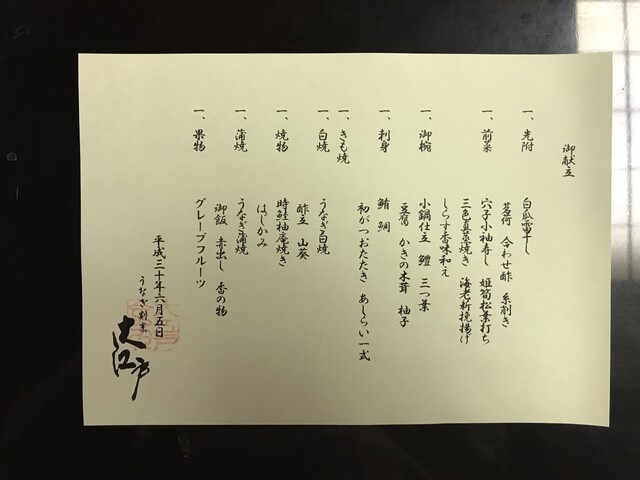 御献立
一、先附
白瓜雷干し
茗荷 合わせ酢 糸削き
一、前菜
穴子小袖寿し 姫筍松葉打ち
三色真薯焼き 海老新挽揚げ
しらす香味和え
一、御椀
小鍋仕立 鱧 三つ葉
豆腐 かきの木茸 柚子
一、刺身
鮪 鯛
初がつおたたき あしらい一式
一、きも焼
一、白焼
うなぎ白焼
酢立 山葵
一、焼物
時鮭柚庵焼き
はじかみ
一、蒲焼
うなぎ蒲焼
御飯 赤出し 香の物
一、果物
グレープフルーツ
平成三十年六月五日
うなぎ割烹
大江戸